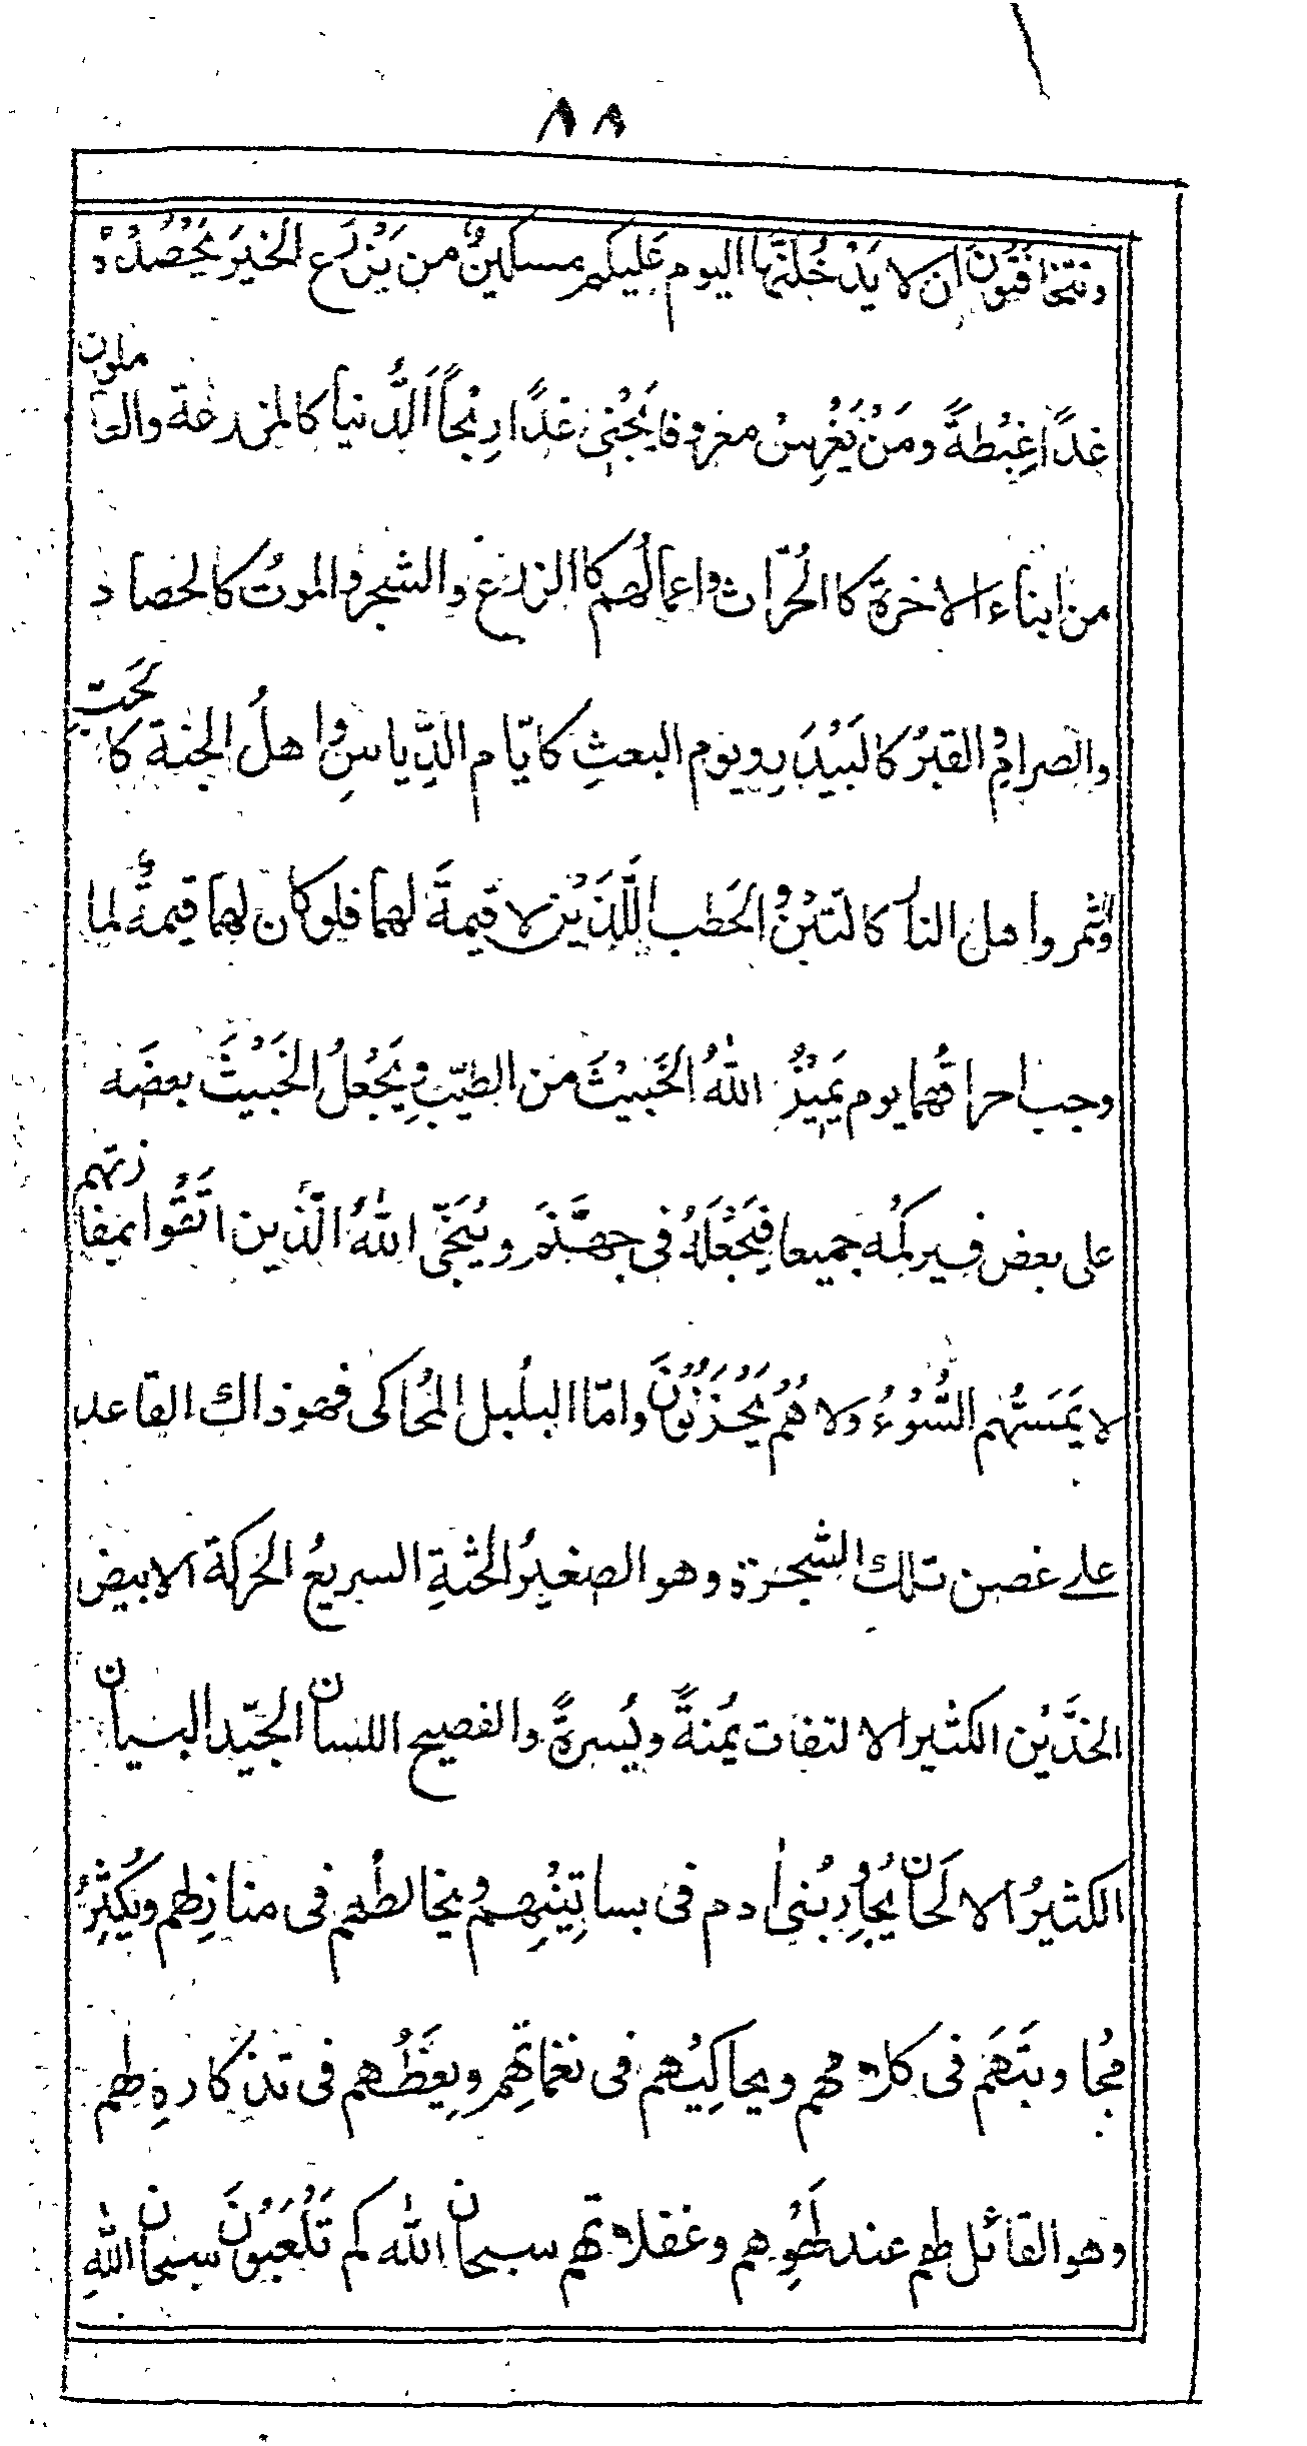 ٨٨
وتتخافتون ان لا يَدْخُلَنَّها اليوم عَليكم مسكينٌ من يَزْرَع الخيرَ يَحْصُدْه
غدًا غِبْطةً ومَنْ يَغْرِسْ معروفا يَجْنِي غدًا رِبْحاً اَلدُّنيا كالمزرعة والعاملون
من ابناء الاخرة كا الحُرّاث واعمالُهم كا الزرع والشجر والموتُ كالحصاد
والصرامِ والقبرُ كالبَيْدَرِ ويوم البعثِ كايّام الدِّياسِ واهلُ الجنة كالحَبّ
والثمر واهل النار كالتبْنِ والحَطب اللَّذَيْنِ لا قيمةَ لهما فلو كان لهما قيمةٌ لما
وجب احراقُهما يوم يَمِيْزُ اللهُ الخَبيْثَ من الطيّبِ ويَجْعلُ الخَبيْثَ بعضَه
على بعض فيركمُه جميعا فيَجْعَلَهُ فى جهنَّمَ ويُنَجِّى اللهُ الَّذين اتَّقَوا بمفازتهم
لا يَمَسُّهم السُّوْءُ ولا هُمْ يَحْزَنُوْنَ وامّا البلبل المُحاكى فهو ذالك القاعد
على غصن تلك الشجرة وهو الصغيرُ الجُثةِ السريعُ الحركة الابيض
الخدَّيْن الكثير الالتفات يُمنةً ويُسرةً والفصيح اللسان الجيّد البيان
الكثيرُ الالَحان يُجاوِرُ بُنى اٰدم فى بساتِيْنِهم ويخالطُهم فى منازلِهم ويُكْثِرُ
مُجاوبتَهم فى كلامهم ويحاكِيْهم فى نغماتِهم ويعِظُهم فى تذكارهِ لهم
وهو القائل لهم عند لَهْوِهم وغفلاتهم سبحان الله كم تَلْعَبُوْنَ سبحان اللهِ